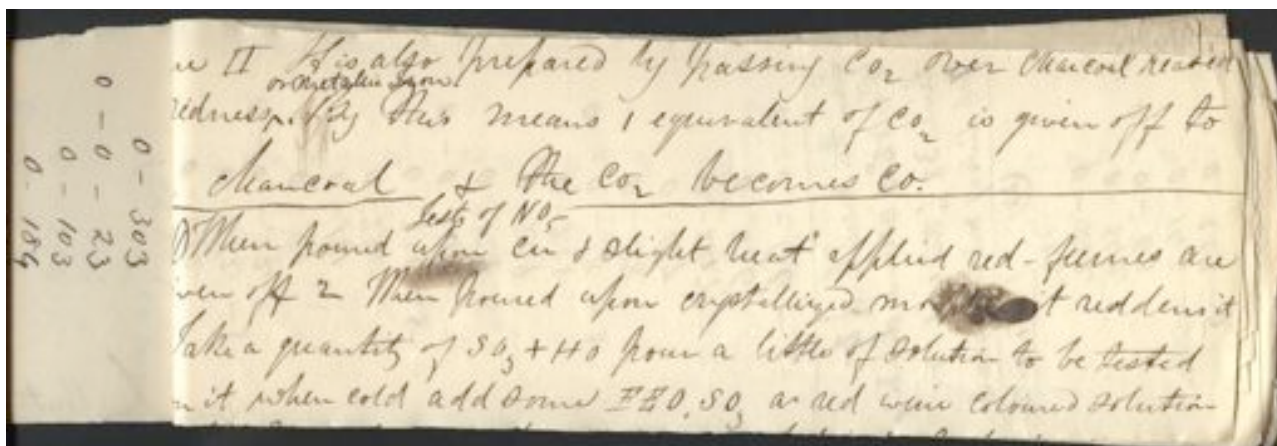 0 - 303
0 - 0 - 23
0 - 103
0 - 184
II It is also prepared by passing Co2 over charcoal heated
or metallic Iron
redness. By this means 1 equivalent of Co2 is given off to
charcoal & the Co2 becomes Co.
Tests of NO5
When poured upon Cu & slight heat applied red-fumes are
off 2 When poured upon crystallized it reddens it
Take a quantity of SO3 + HO pour a little of solution to be tested
it when cold add some FEO, SO3 a red wine coloured solution